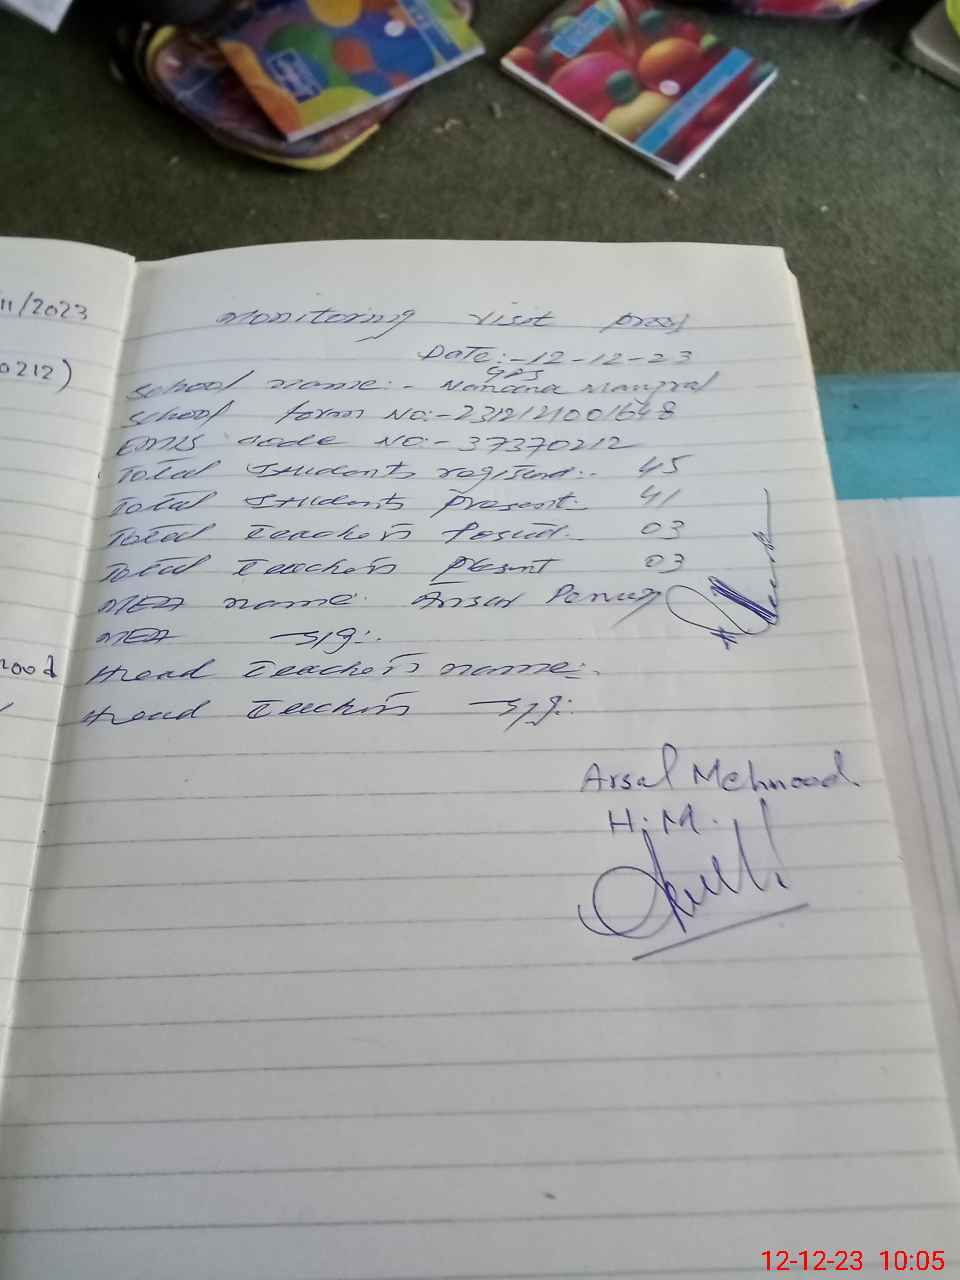 11/2023
0212)
mood
Monitoring visit proof
Date:-12-12-23
GPS
School name:- Nanana Manjral
School form No:-231212100/648
EMIS code NO:- 37370212
Total students registerd:- 45
Total students present:- 41
Total teachers Posted:- 03
Total teachers Present 03
MEA name: Ansar Pervez
MEA sig:.
Head teachers name:-
Head teachers sig:
Arsal Mehmood
H.M.
12-12-23 10:05